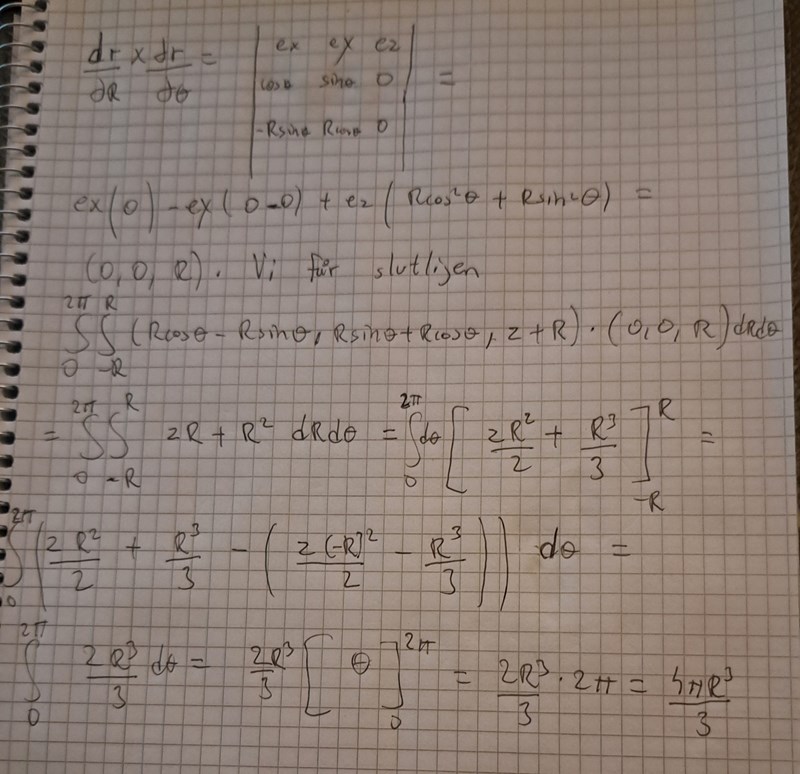 dr/∂R × dr/∂θ = | ex ey ez |
| cosθ sinθ 0 | =
| -Rsinθ Rcosθ 0 |
ex(0) - ey(0-0) + ez(Rcos²θ + Rsin²θ) =
(0, 0, R). Vi får slutligen
∫₀^2π ∫₋R^R (Rcosθ - Rsinθ, Rsinθ + Rcosθ, z + R) · (0, 0, R) dRdθ
= ∫₀^2π ∫₋R^R zR + R² dRdθ = ∫₀^2π dθ [ zR²/2 + R³/3 ]₋R^R =
∫₀^2π ( zR²/2 + R³/3 - ( z(-R)²/2 - R³/3 ) ) dθ =
∫₀^2π 2R³/3 dθ = 2R³/3 [ θ ]₀^2π = 2R³/3 · 2π = 4πR³/3